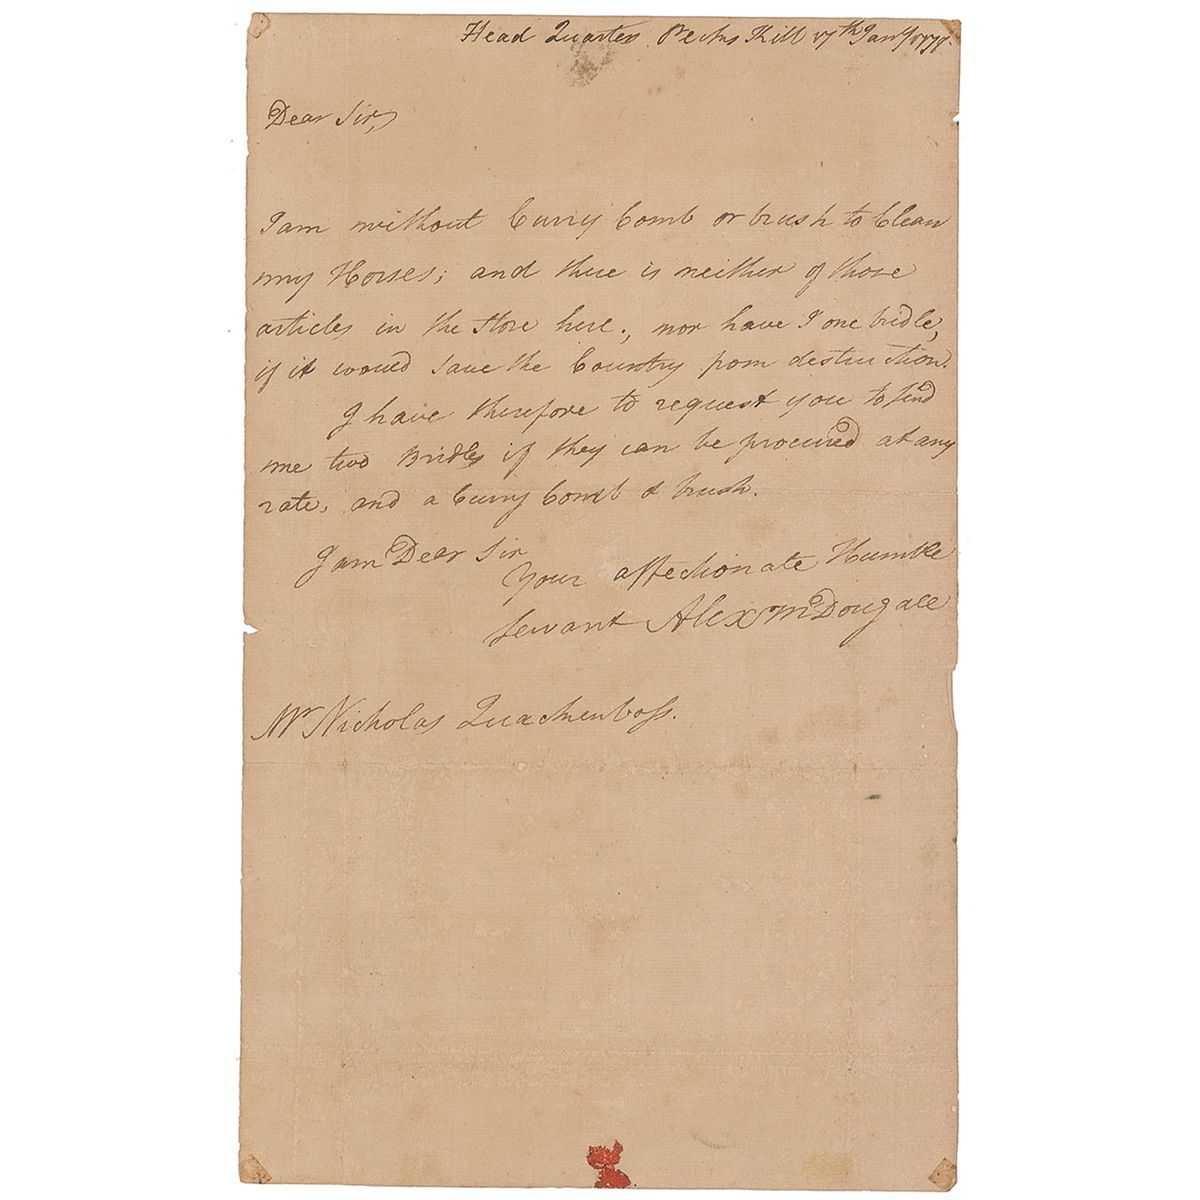 Head Quarters Peeks Kill 17th Jany 1777.
Dear Sir,
I am without Curry Comb or brush to Clean
my Horses; and there is neither of those
articles in the Store here., nor have I one bridle,
if it would save the Country from destruction.
I have therefore to request you to send
me two Bridles if they can be procured at any
rate, and a Curry Comb & brush.
I am Dear Sir
Your affectionate Humble
Servant Alexr McDougall
Mr Nicholas Quackenboss.